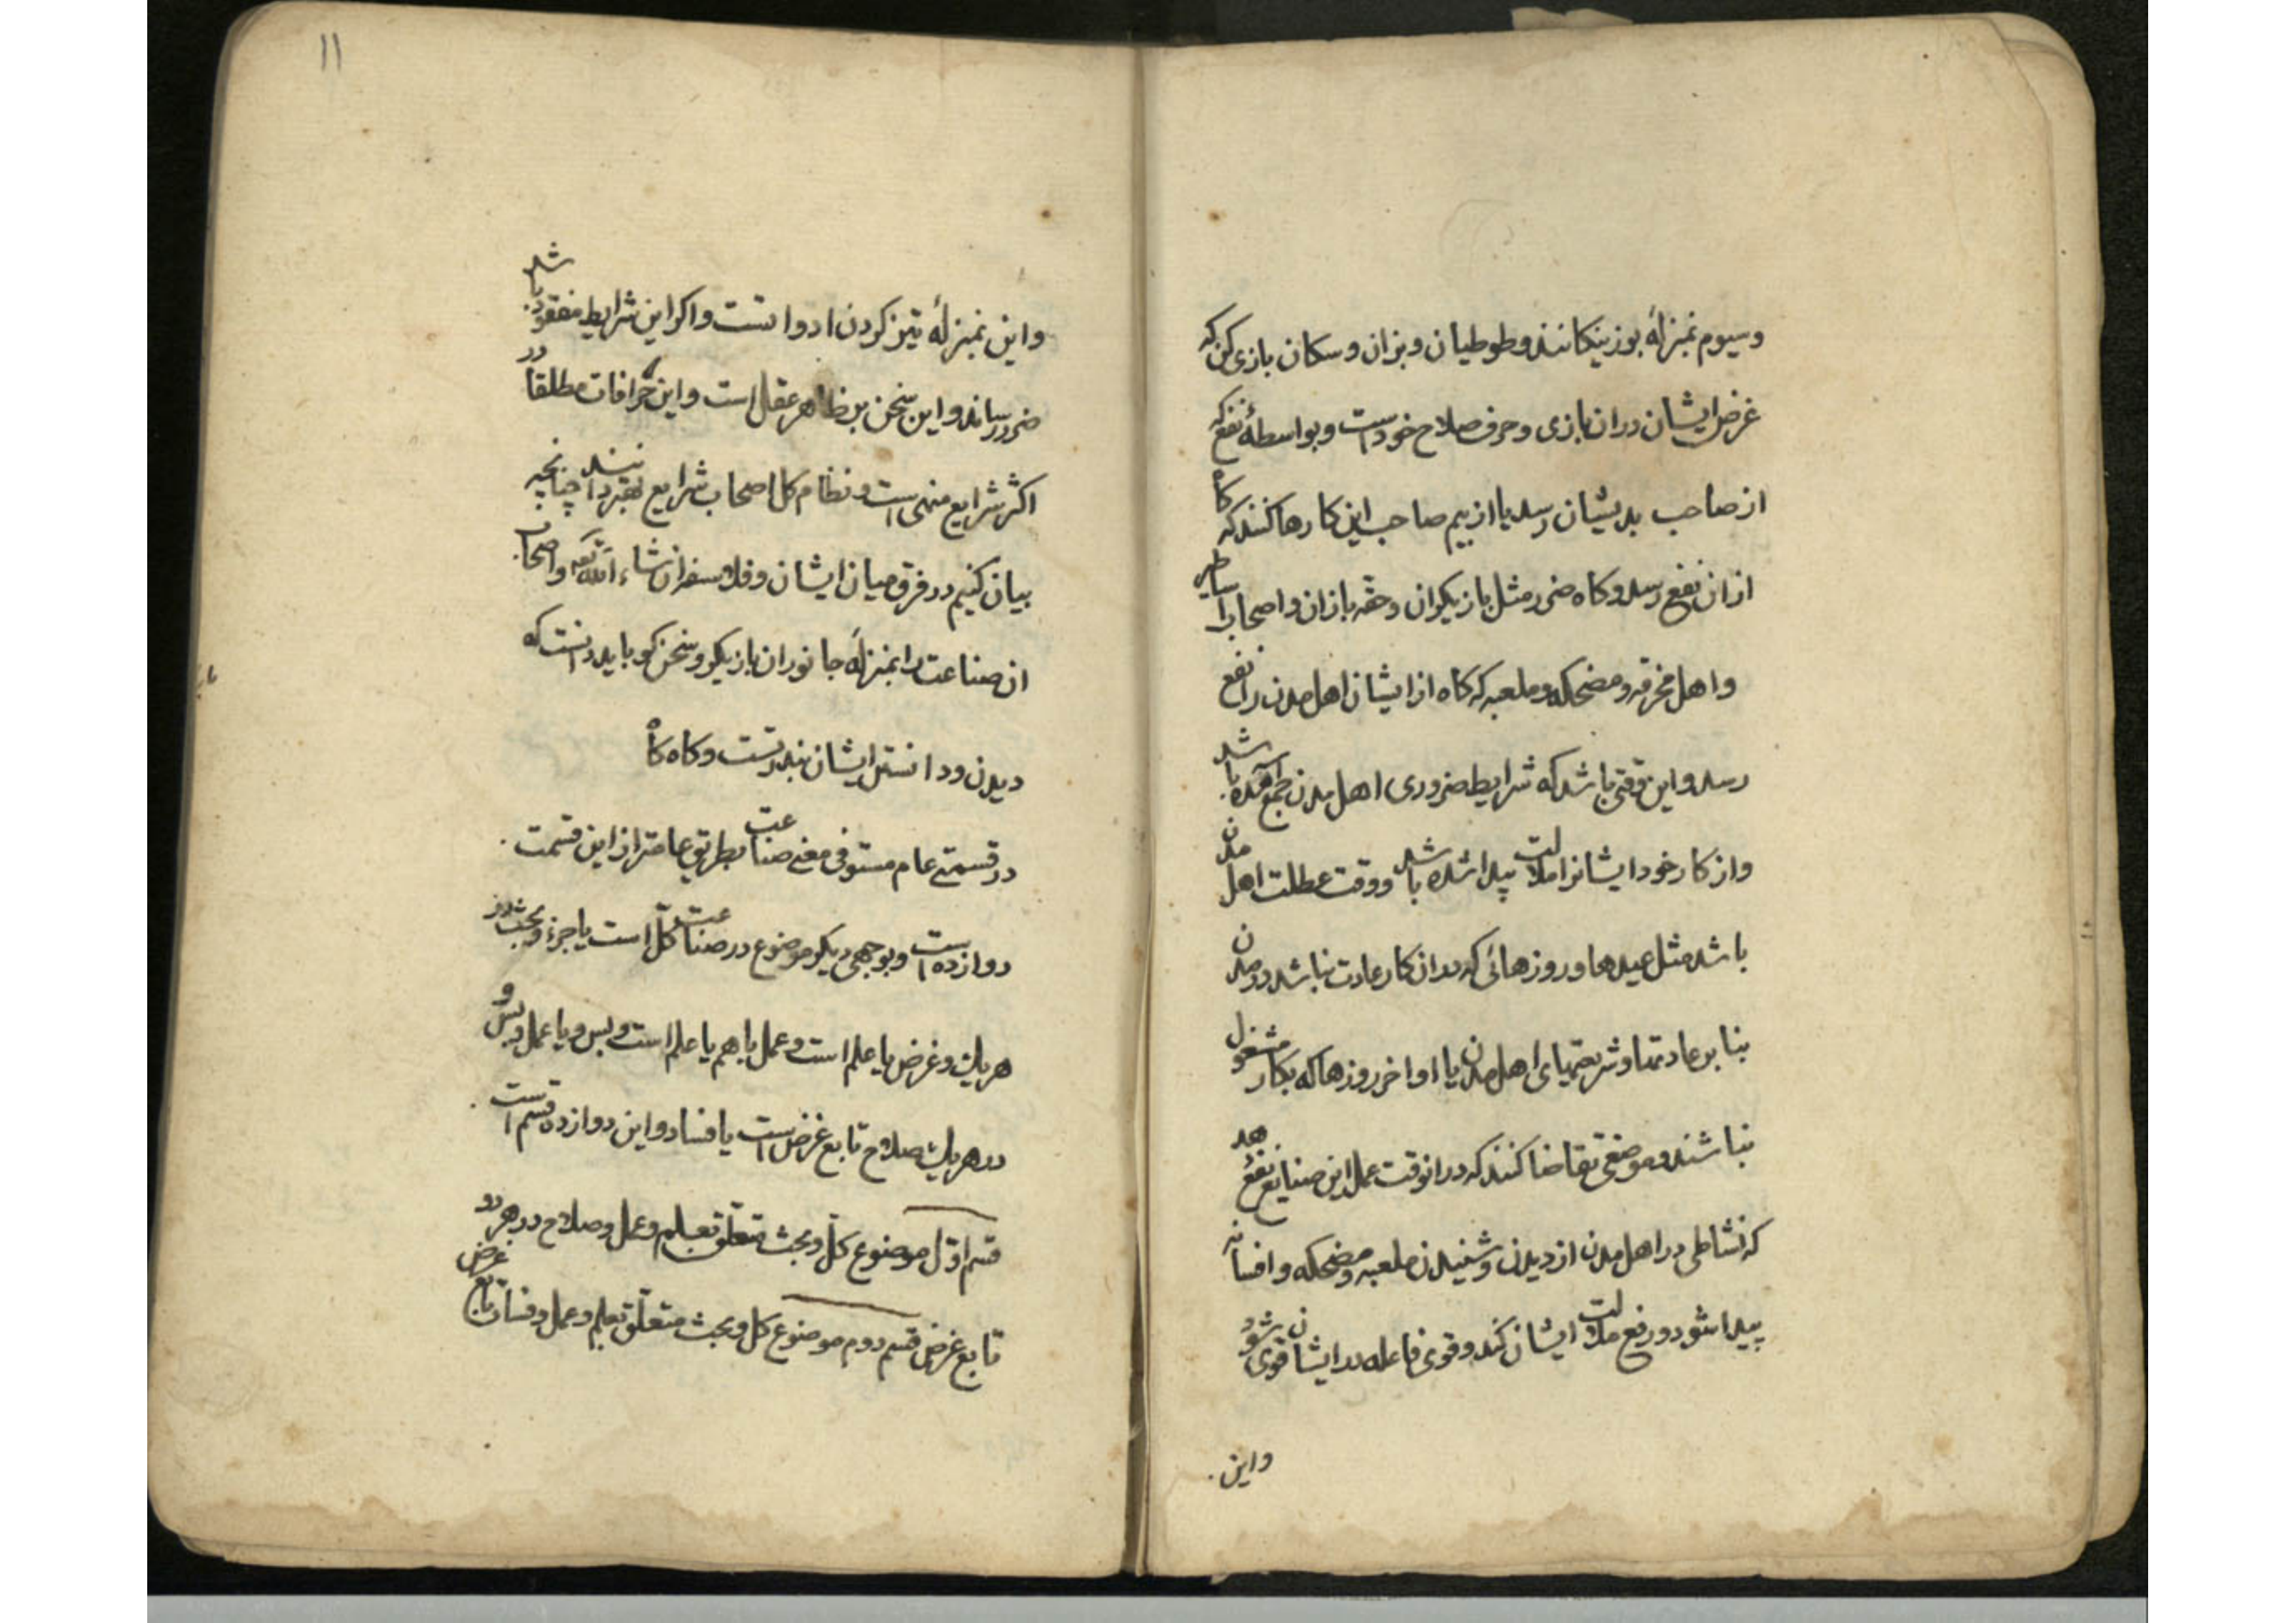 وسیوم بمنزلهٔ بوزینکانند وطوطیان وبزان وسکان بازی کن که
غرض ایشان دران بازی وحرف صلاح خود است وبواسطهٔ نفع که
از صاحب بدیشان رسد یا از بیم صاحب این کارها کنند که کاه
ازان نفع رسد وکاه ضرر مثل بازیکران وحقه بازان واصحاب اساطیر
واهل مخرقه ومضحکه وملعبه که کاه از ایشان اهل مدن را نفع
رسد واین وقتی باشد که شرایط ضروری اهل مدن جمع آمده باشد
واز کار خود ایشانرا ملالت پیدا شده باشد ووقت عطلت اهل مدن
باشد مثل عیدها وروزهائی که بدان کار عادت نباشد در مدن
بنا بر عادتها وشریعتهای اهل مدن یا اواخر روزها که بکار مشغول
نباشند وموضعی تقاضا کند که درانوقت عمل این صنایع نفع دهد
که نشاطی در اهل مدن از دیدن وشنیدن ملعبه ومضحکه وافسانه
پیدا شود ورفع ملالت ایشان کند وقوی فاعله در ایشان قوی شود
واین
۱۱
واین بمنزلهٔ تیز کردن ادواتست واکر این شرایط مفقود باشد
ضرر رساند واین سخن بر ظاهر عقل است واین خرافات مطلقا در
اکثر شرایع منهی است ونظام کل اصحاب شرایع بهتر دانند چنانچه
بیان کنیم در فرق میان ایشان وفلاسفه ان شاء الله تعه واصحاب
ان صناعت را بمنزلهٔ جانوران بازیکر وسخن کو باید دانست که
دیدن ودانستن ایشان بندرتست وکاه کاه
در قسمتی عام مستوفی معنی صناعت بطریق عامتر از این قسمت
دوازده است وبوجهی دیکر موضوع در صناعت کل است یا جزء وبحث در
هریک وغرض یا علم است وعمل باهم یا علم است وبس ویا عمل وبس و
در هریک صلاح تابع غرض است یا فساد واین دوازده قسم است
قسم اول موضوع کل وبحث متعلق بعلم وعمل وصلاح در هر دو
تابع غرض قسم دوم موضوع کل وبحث متعلق بعلم وعمل وفساد تابع غرض